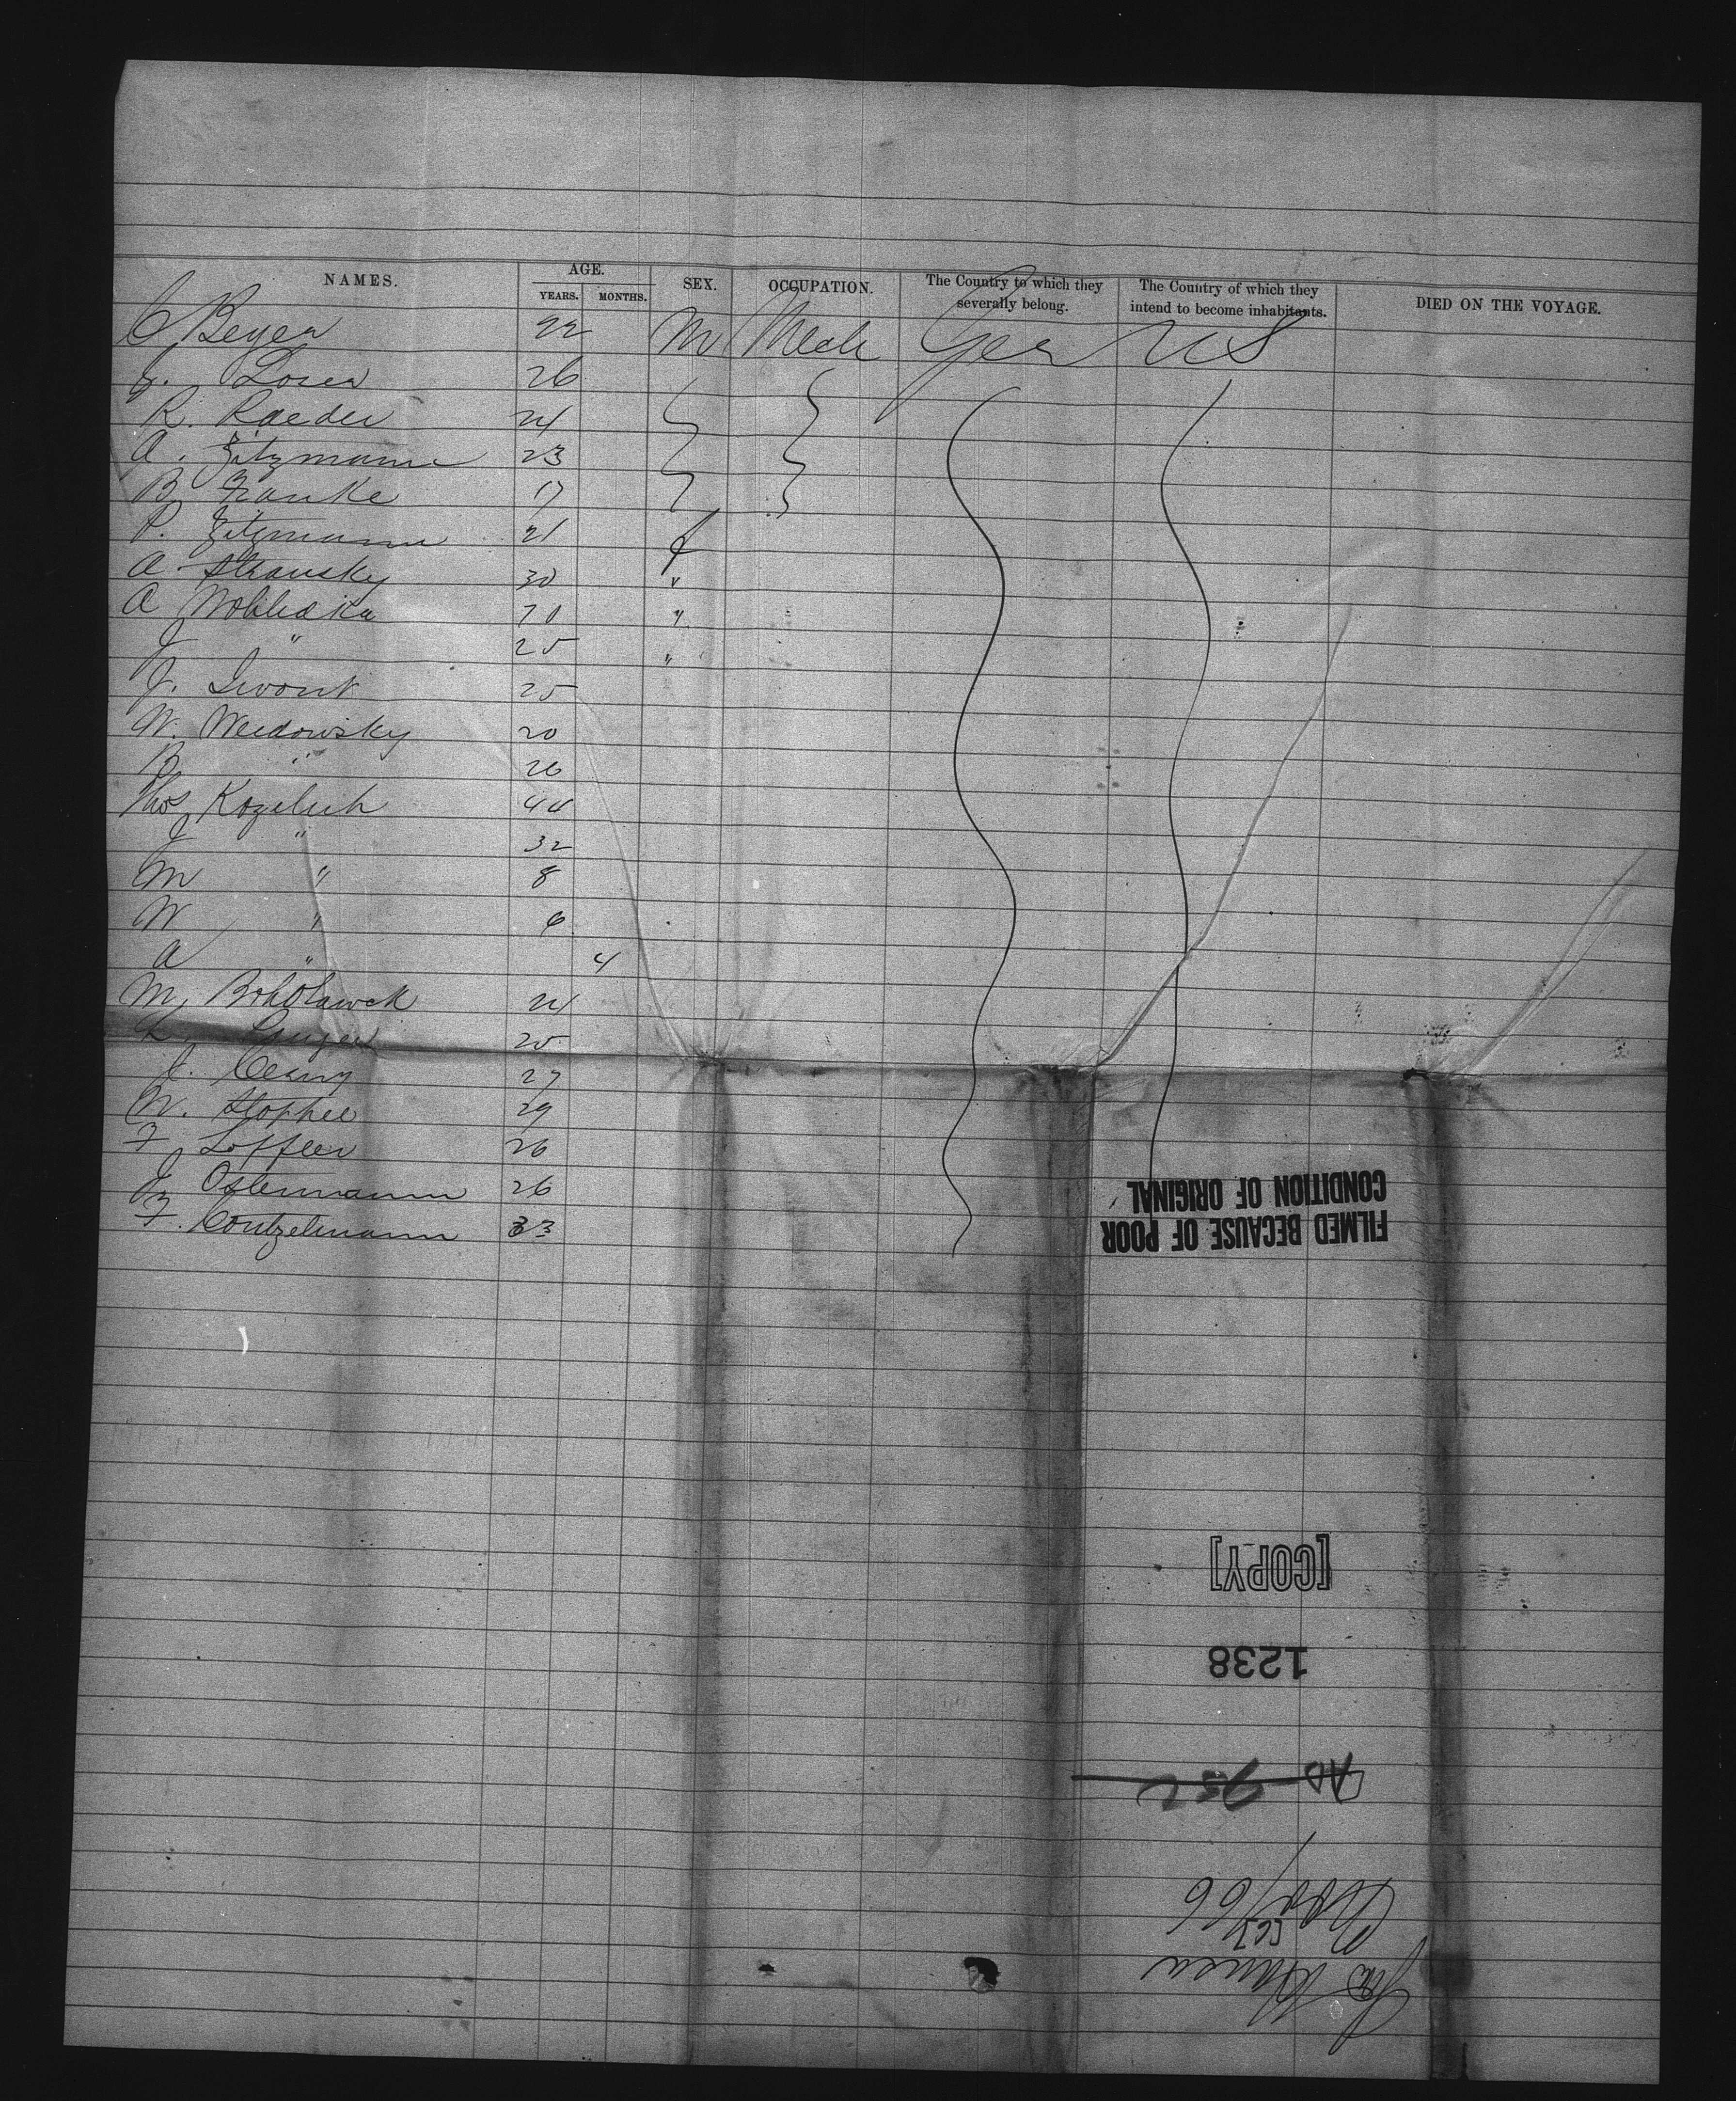 NAMES. AGE. YEARS. MONTHS. SEX. OCCUPATION. The Country to which they severally belong. The Country of which they intend to become inhabitants. DIED ON THE VOYAGE.
C Beyer 22 M Mech Ger US
J. Loser 26
R. Raeder 24
A. Zitzmann 23
B Franke 17
P. Zitzmann 21 f
A Stransky 30 "
A 70 "
J " 25 "
J. 25
W. Weidowsky 20
B " 26
Thos Kozeluh 44
J " 32
M " 8
W " 6
A " 4
M. 24
L. 25
J. Cerny 27
W. 29
F. Loffler 26
J Ostermann 26
F. Contzelmann 33
FILMED BECAUSE OF POOR
CONDITION OF ORIGINAL
[COPY]
1238
952
66